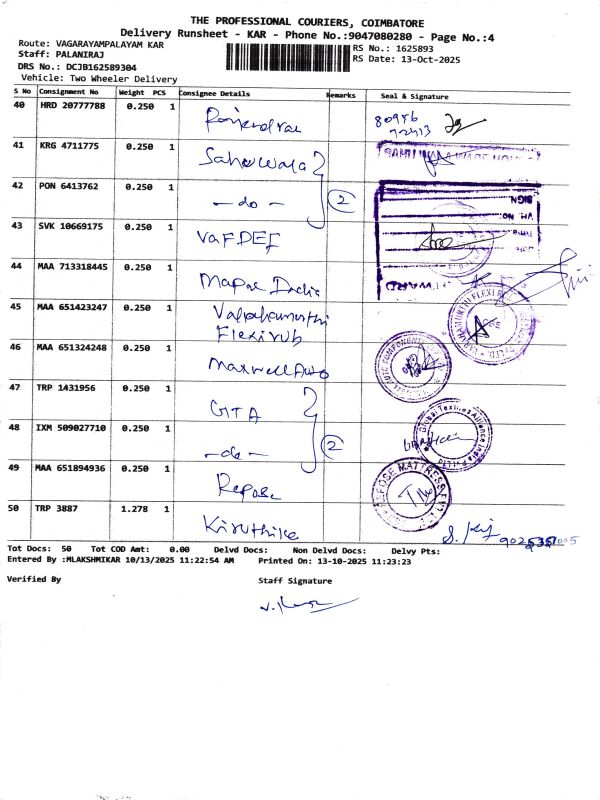 THE PROFESSIONAL COURIERS, COIMBATORE
Delivery Runsheet - KAR - Phone No.:9047080280 - Page No.:4
Route: VAGARAYAMPALAYAM KAR
RS No.: 1625893
Staff: PALANIRAJ
RS Date: 13-Oct-2025
DRS No.: DCJB162589304
Vehicle: Two Wheeler Delivery
S No Consignment No Weight PCS Consignee Details Remarks Seal & Signature
40 HRD 20777788 0.250 1 Rajendran 80956
41 KRG 4711775 0.250 1 Saherwala
42 PON 6413762 0.250 1 - do - 2
SIGN
43 SVK 10669175 0.250 1
44 MAA 713318445 0.250 1 India
WARD
45 MAA 651423247 0.250 1
Flexirub
46 MAA 651324248 0.250 1 Maxwell Auto
47 TRP 1431956 0.250 1 GTA
Global Textiles Alliance India
48 IXM 509027710 0.250 1 - do - 2
49 MAA 651894936 0.250 1 Repose
REPOSE MATTRESS PVT
50 TRP 3887 1.278 1 Kiruthika
Tot Docs: 50 Tot COD Amt: 0.00 Delvd Docs: Non Delvd Docs: Delvy Pts:
Entered By :MLAKSHMIKAR 10/13/2025 11:22:54 AM Printed On: 13-10-2025 11:23:23
Verified By Staff Signature